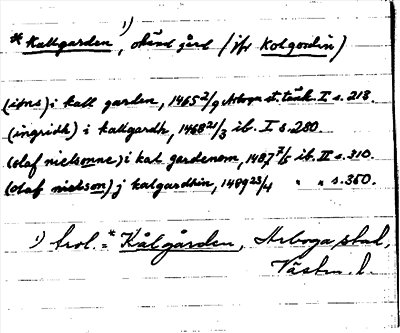 * Kallgarden 1), okänd gård (jfr Kolgordin)
(isns) i kall garden, 1465 2/9 Arboga st. tänk. I s. 218.
(ingridh) i kallgardh, 1468 21/3 ib. I s. 280.
(olaf nielsonne) i kal gardenom, 1487 7/5 ib. II s. 310.
(olaf nielson) j kalgardhin, 1489 23/4 " " s. 350.
1) Trol. = * Kålgården, Arboga stad,
Västm. l.